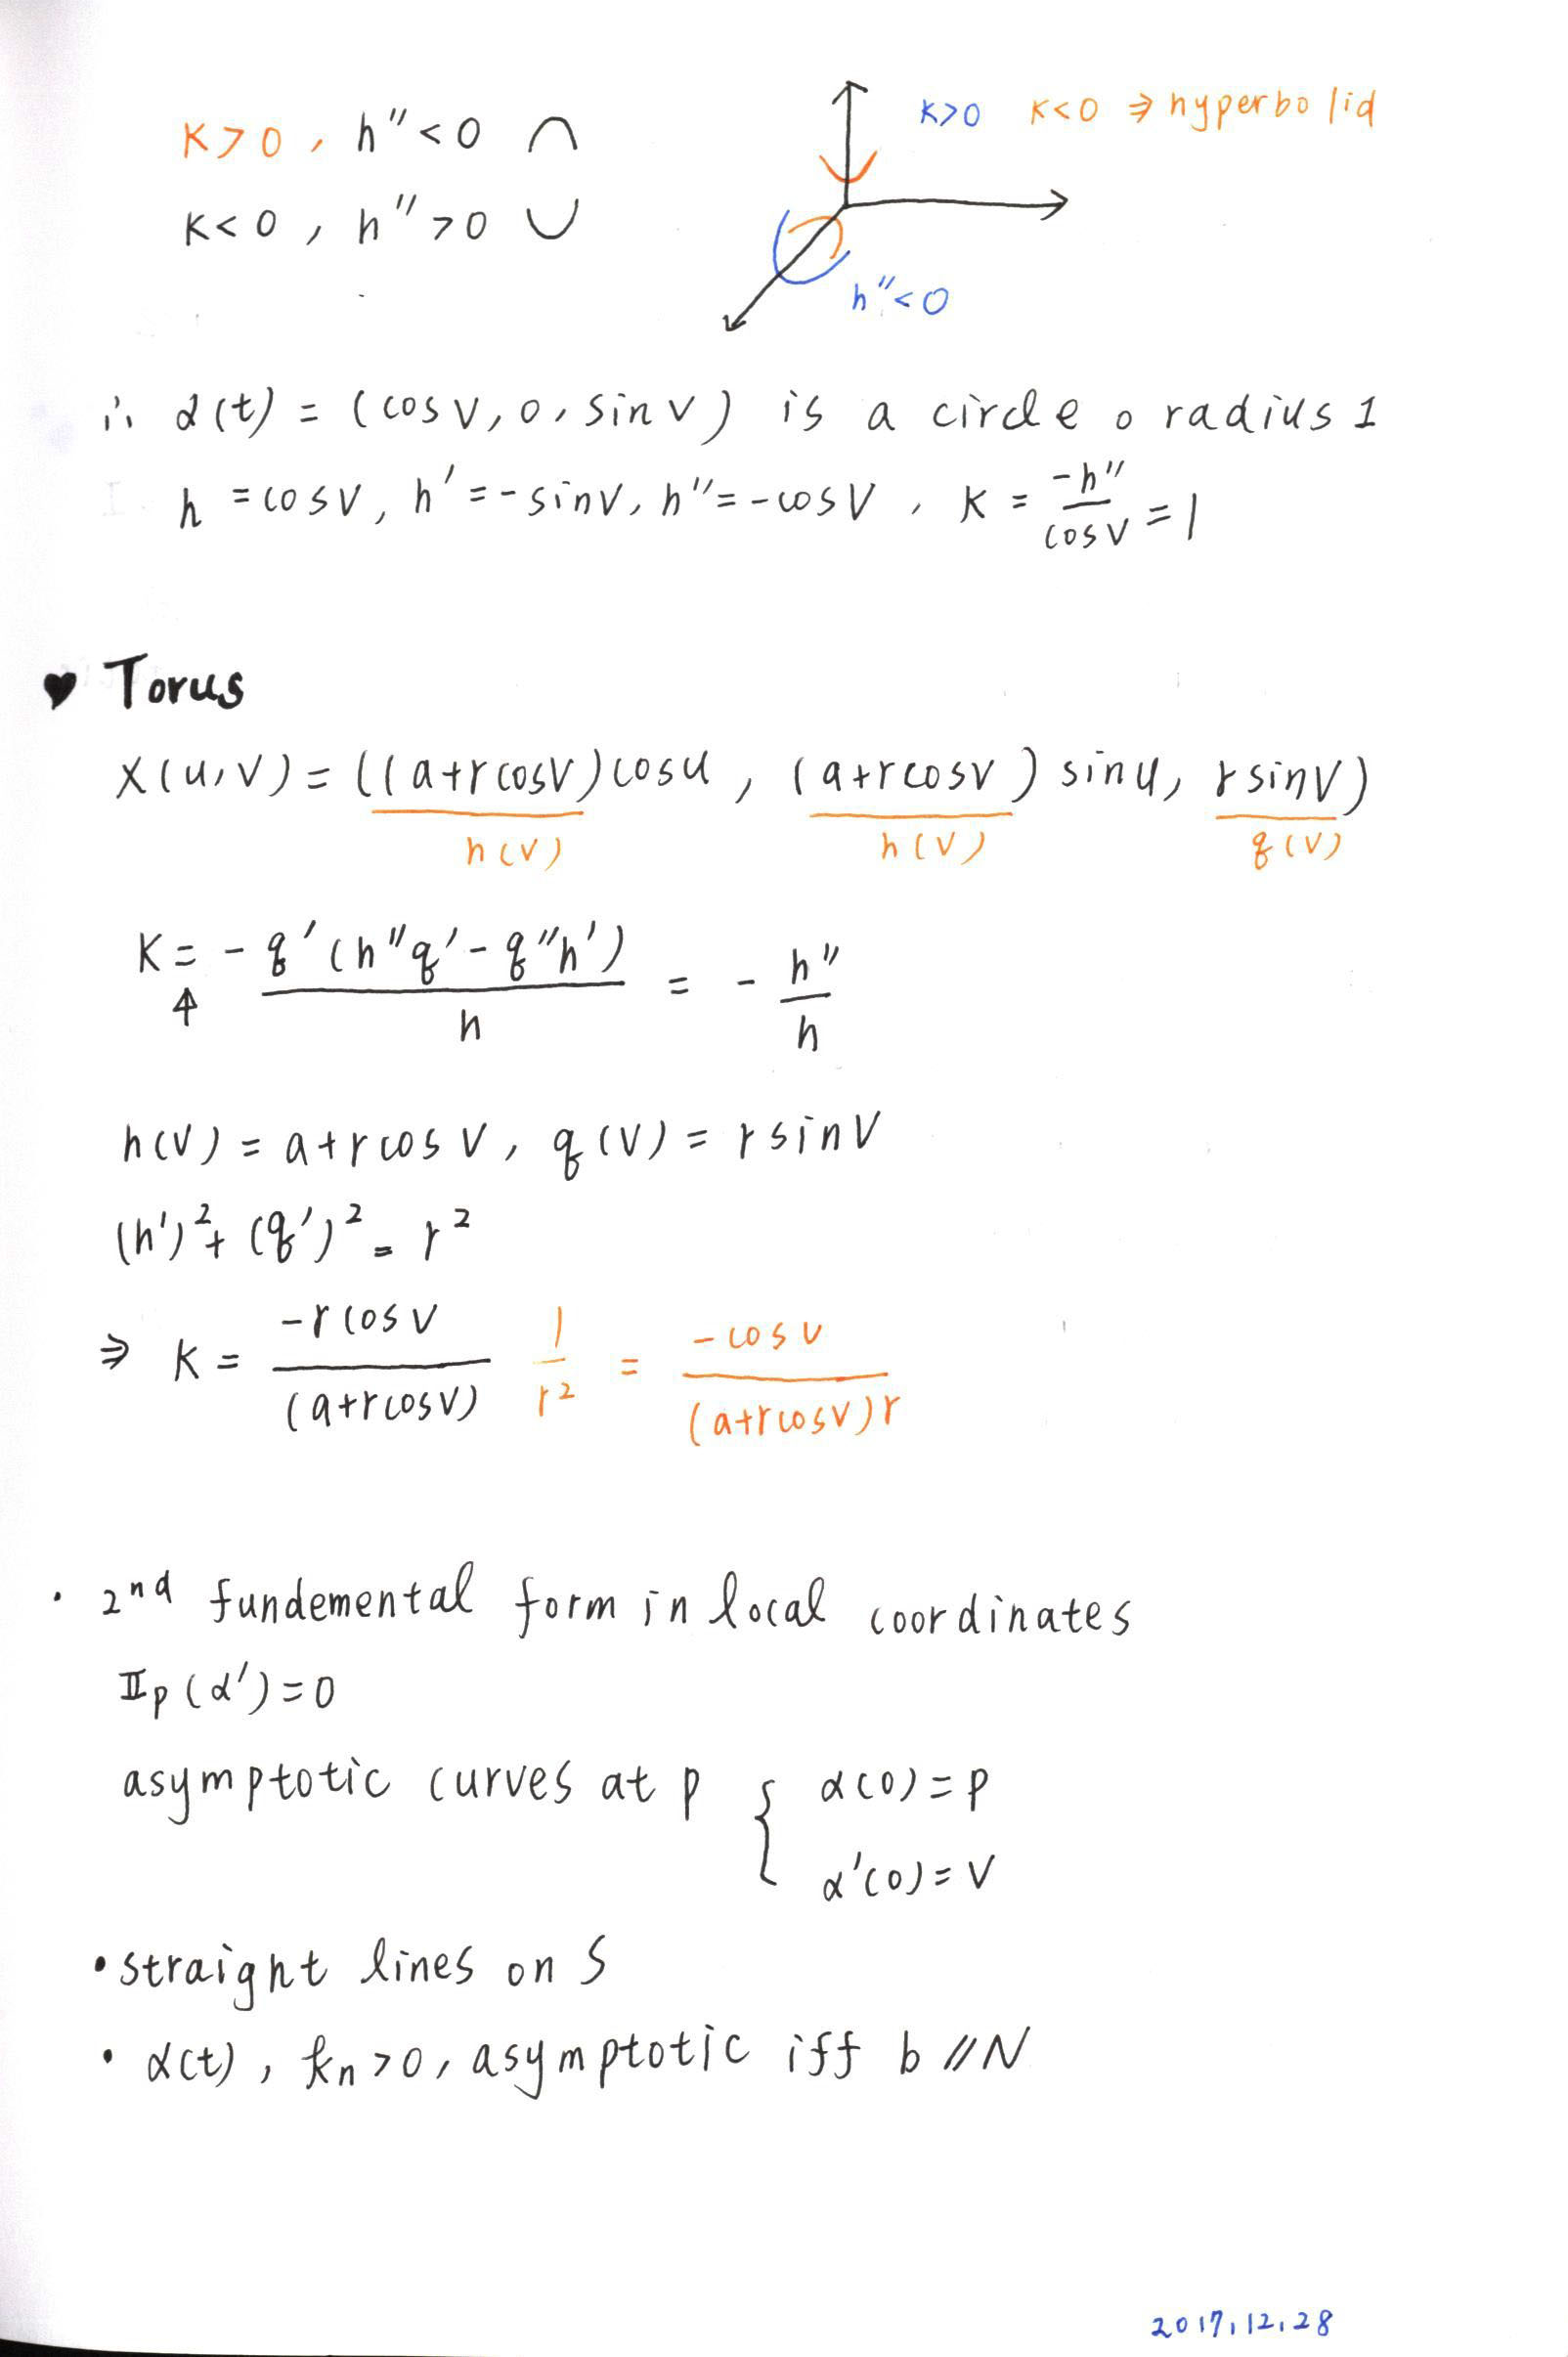 K>0, h''<0 ∩
K<0, h''>0 ∪
K>0 K<0 ⇒ hyperbolid
h''<0
∴ α(t) = (cos v, 0, sin v) is a circle o radius 1
h = cos v, h' = -sin v, h'' = -cos v, K = -h''/cos v = 1
♥ Torus
X(u,v) = ((a+r cos v) cos u, (a+r cos v) sin u, r sin v)
h(v) h(v) g(v)
K = - g'(h''g' - g''h')/h = - h''/h
↑
h(v) = a+r cos v, g(v) = r sin v
(h')² + (g')² = r²
⇒ K = -r cos v/(a+r cos v) 1/r² = -cos v/(a+r cos v)r
· 2nd fundemental form in local coordinates
IIp(α') = 0
asymptotic curves at p { α(0) = p
α'(0) = v
• straight lines on S
• α(t), kn>0, asymptotic iff b // N
2017.12.28